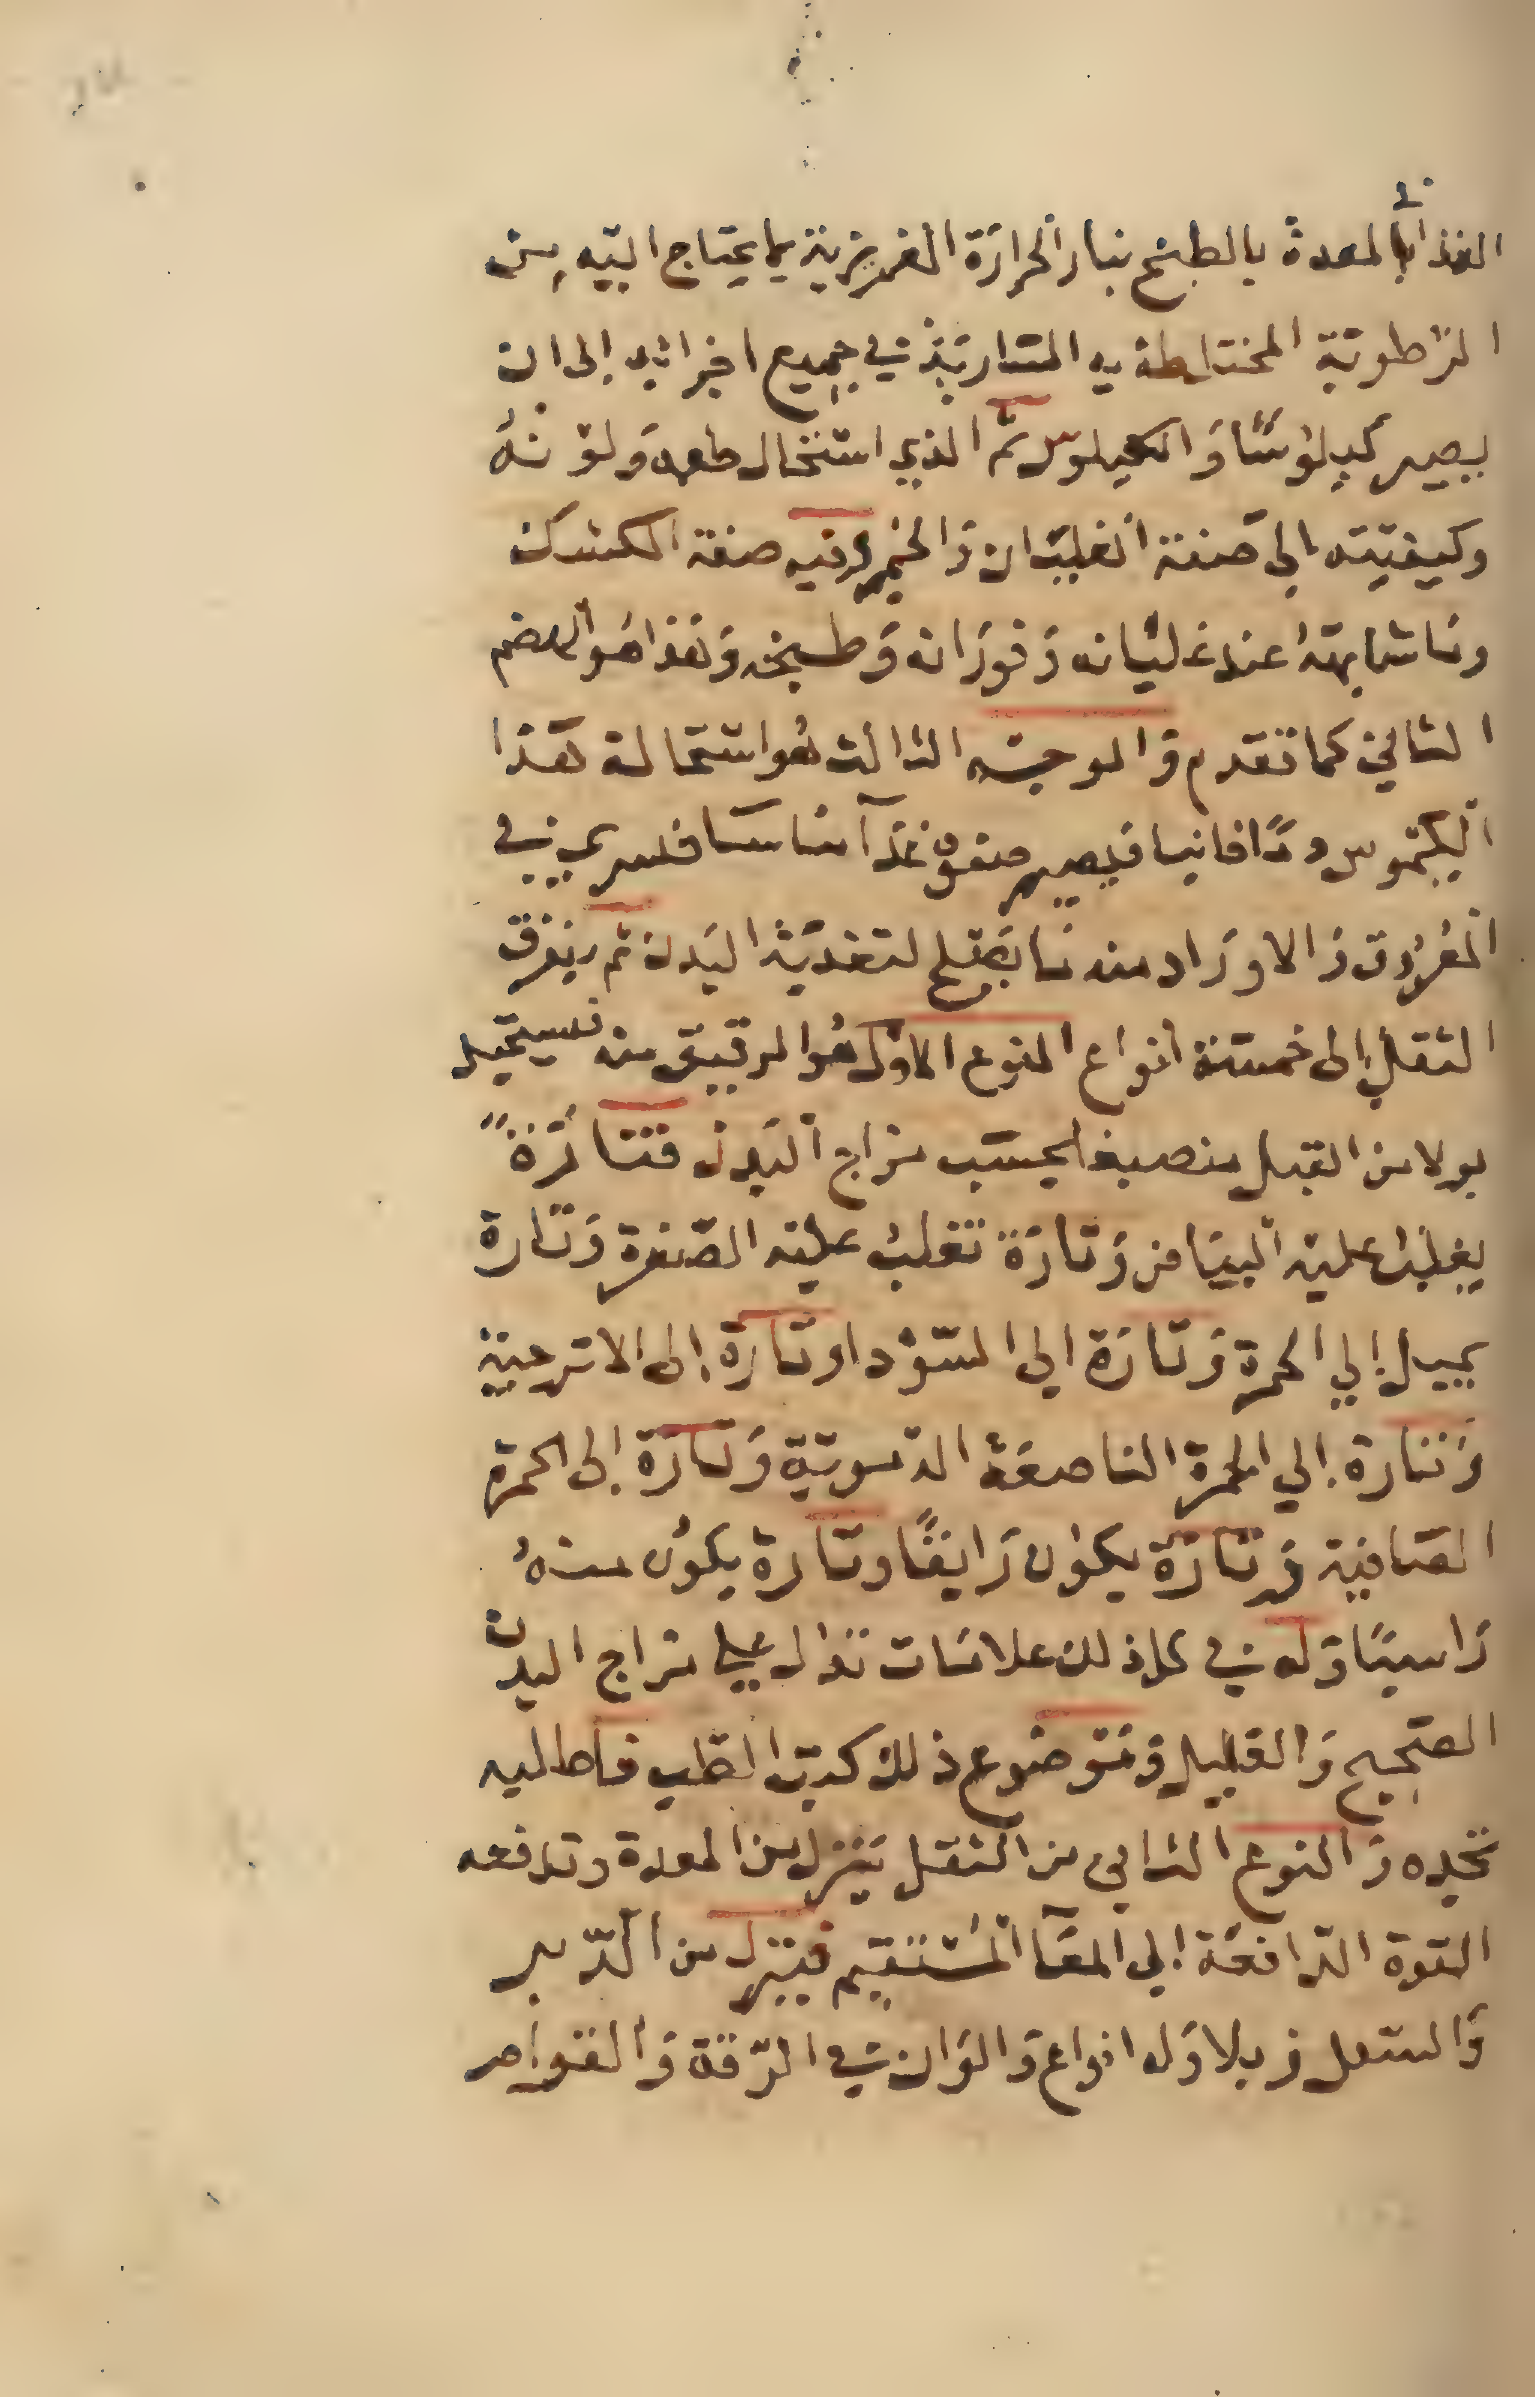 الغذا بالمعدة بالطبخ بنار الحرارة الغريزية بما يحتاج اليه من
الرّطوبَة المختلطة به المتاربَة في جميع اجزائه إلى ان
يصير كيلوسًا وَالكيلوس ثم الذي استحال طعمه وَلوْنهُ
وكيفيّته الى صفة الغليان وَالخمير وفيه صفة الكشك
وما شابهَهُ عند غليانه وَفوَرَانه وَطبخه وَهَذا هَو الهضم
الثاني كما تقدم وَالوجه الثالث هُو استحالة هَذا
الكيموس دمًا فانيا فيصير صفو غذآ مناسبا فيسري في
العُرُوق وَالاورَاد منه مَا يَصلح لتغديَة البَدن ثم يفرق
الثقل إلى خمسَة انواع النوع الاول هُوَ الرقيق منه فيستحيل
بولا من القبل منصبغا بحسَب مزاج البَدن فتارَةً
يغلبُ عليه البيَاض وَتارَة تغلبُ عليه الصّفرة وَتارة
يميل إلي الحمرة وَتَارَة الي السّوْدا وتارَة إلى الاترجية
وَتارة إلي الحمرة الناصعَة الدّمويّة وَتارَة إلى الحمرة
الصَافية وَتارَة يكوُن رَايقًا وتارة يكوُن منهُ
رَاسيًا وَله في كل ذلك علامَات تدل علي مزاج البدن
الصّحيح وَالعليل وَمَوضوع ذلك كتبُ الطّب فاطلبه
تجده وَالنوع الثاني من الثقل يَنزل من المعدة وتدفعه
القوة الدّافعَة إلي المعَا المُسْتقيم فينزل من الدّبر
وَالثفل زبلا وَله انواع وَالوَان في الرّقة وَالقوام